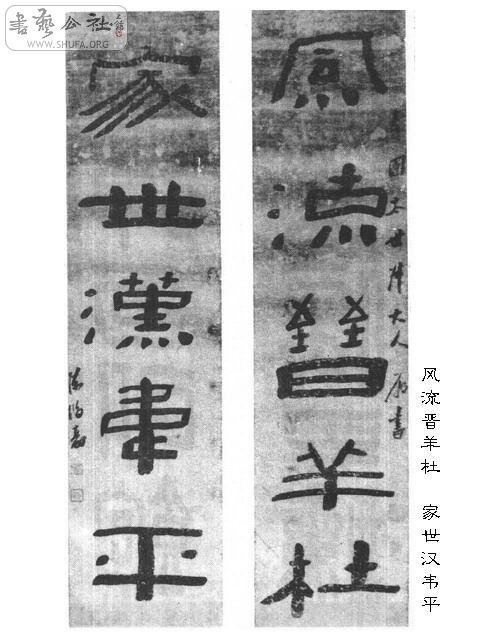 書藝公社
WWW.SHUFA.ORG
風流晉羊杜
家世漢韋平
陳鴻壽
风流晋羊杜 家世汉韦平